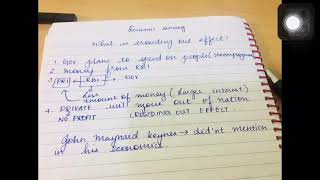 Economic survey
What is crowding out effect?
1. Gov plans to spend on people (unemployment
2. Money from RBI
3. PRI ← RBI → GOV
less
amount of money (larger interest)
4. PRIVATE will move out of nation
NO PROFIT CROWDING OUT EFFECT.
John Maynaid keynes → did'nt mention
in his economics